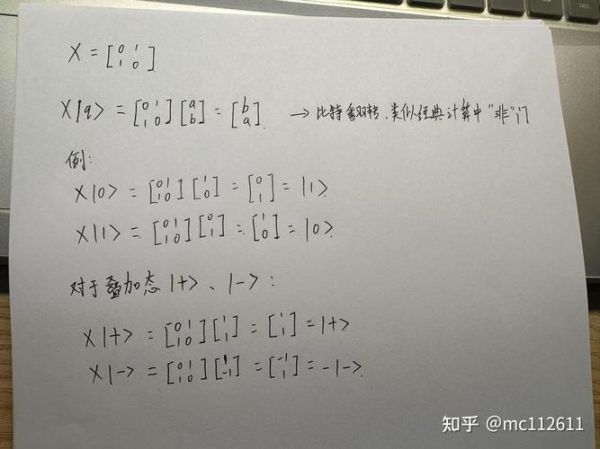 X = [0 1 1 0]
X|q> = [0 1 1 0][a b] = [b a] → 比特翻转,类似经典计算中"非"门
例:
X|0> = [0 1 1 0][1 0] = [0 1] = |1>
X|1> = [0 1 1 0][0 1] = [1 0] = |0>
对于叠加态 |+>、|->:
X|+> = [0 1 1 0][1 1] = [1 1] = |+>
X|-> = [0 1 1 0][1 -1] = [-1 1] = -|->
知乎 @mc112611